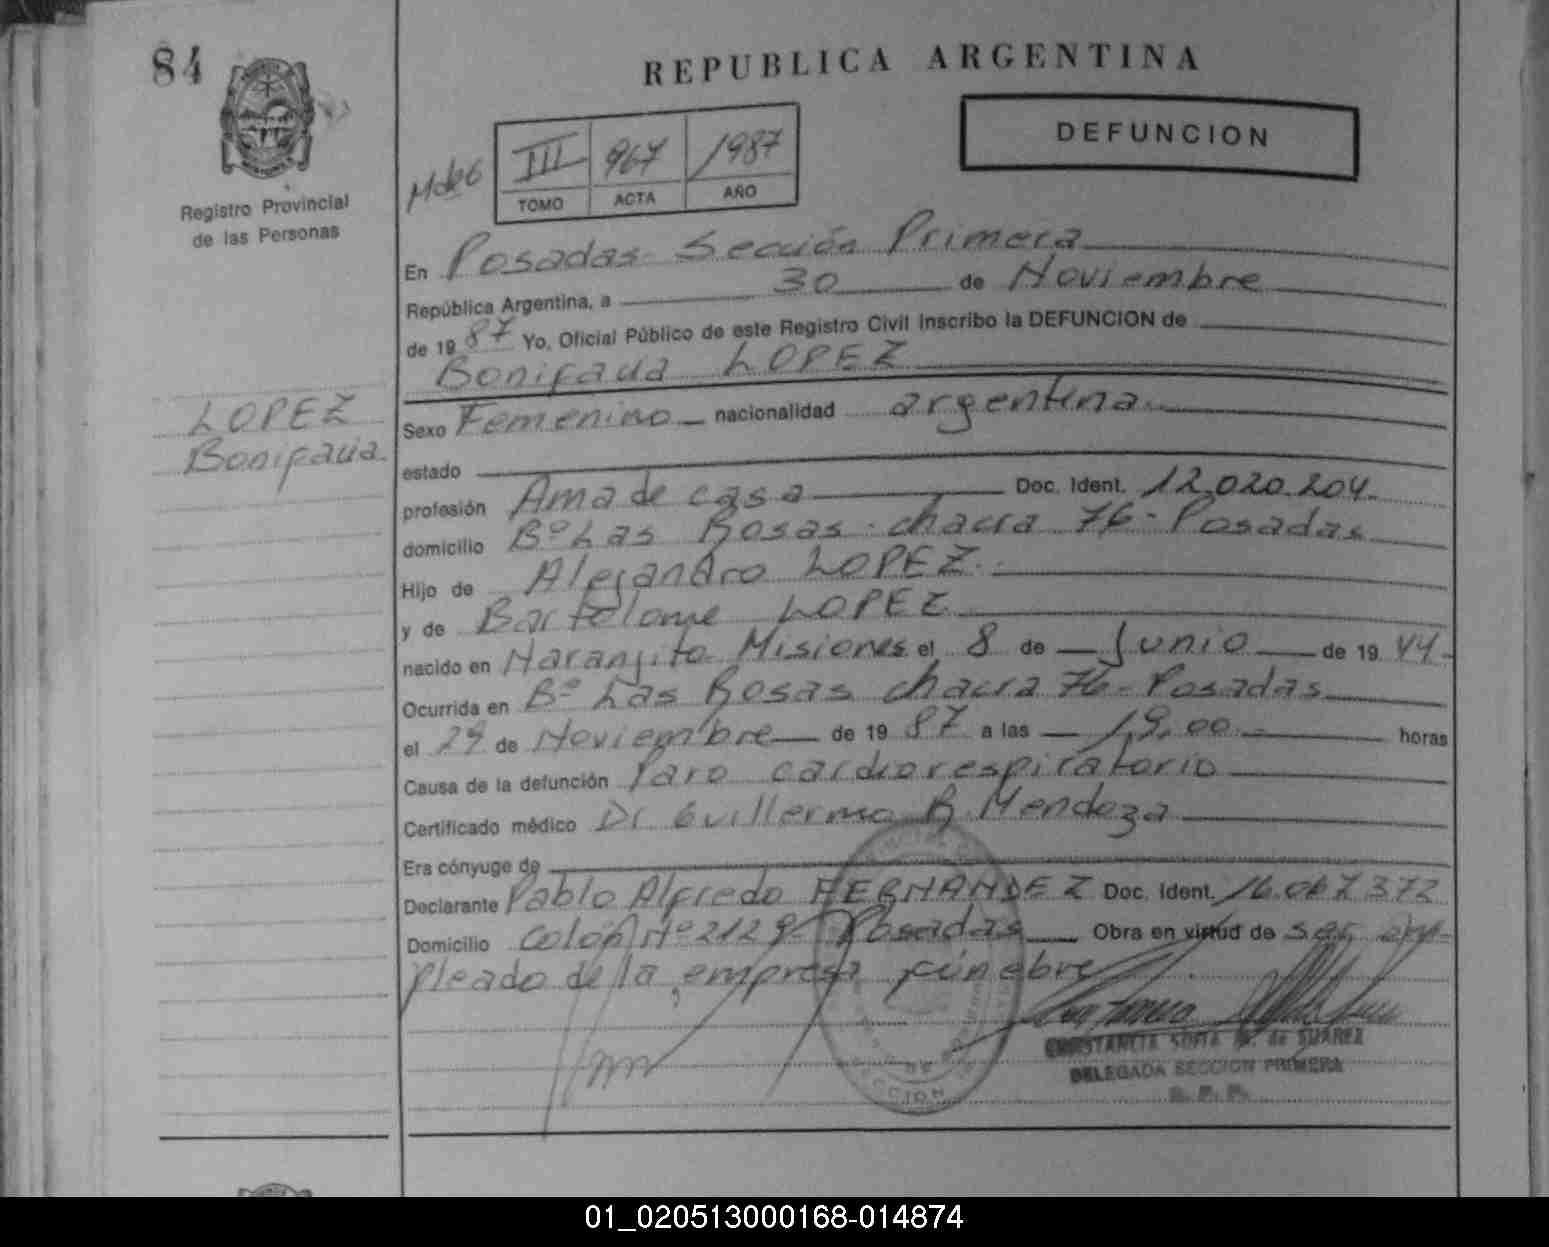 84
REPUBLICA ARGENTINA
DEFUNCION
III 967 1987
TOMO ACTA AÑO
Registro Provincial
de las Personas
En Posadas - Sección Primera
República Argentina, a 30 de Noviembre
de 1987 Yo, Oficial Público de este Registro Civil inscribo la DEFUNCION de
Bonifacia LOPEZ
LOPEZ
Bonifacia.
Sexo Femenino nacionalidad argentina
estado
profesión Ama de casa Doc. Ident. 12.020.204.
domicilio Bº Las Rosas - chacra 76 - Posadas
Hijo de Alejandro LOPEZ
y de Bartolome LOPEZ
nacido en Naranjito Misiones el 8 de Junio de 1944
Ocurrida en Bº Las Rosas chacra 76 - Posadas
el 29 de Noviembre de 1987 a las 19,00 horas
Causa de la defunción Paro cardiorespiratorio
Certificado médico Dr Guillermo R. Mendoza
Era cónyuge de
Declarante Pablo Alfredo FERNANDEZ Doc. Ident. 16.067.372
Domicilio Colón Nº 2129 Posadas Obra en virtud de ser em-
pleado de la empresa fúnebre
CONSTANCIA SOFIA de SUAREZ
DELEGADA SECCION PRIMERA
R. P. P.
01_020513000168-014874